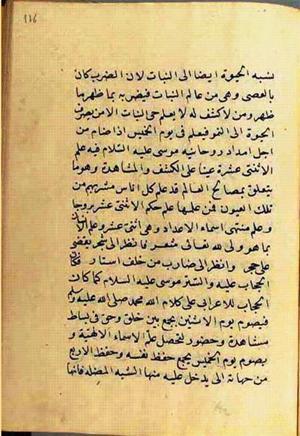 116
نسبه الحيوة ايضا الى النبات لان الضرب كان
بالعصى وهى من عالم النبات فيضربه بما ظهر بها
ظهر ومن لا كشف له لا يعلم حى النبات الا من يصرف
الحيوة الى النمو فيعلم فى يوم الخميس اذا صام من
اجل امداد روحانيه موسى عليه السلام فيه علم
الاثنتى عشرة عينا على الكشف والمشاهدة وهو ما
يتعلق بمصالح العالم قد علم كل اناس مشربهم من
تلك العيون فمن علمها علم حكم الاثنى عشر بروجا
وعلم منتهى اسماء الاعداد وهى اثنى عشر وعلم الانسان
بما هو ولى لله تعالى شعر فانظر الى شجر يقضو
على حجر وانظر الى ضارب من خلف استار فكان
الحجاب عليه والستر موسى عليه السلام كما كان
الحجاب للاعرابى على كلام الله محمد صلى الله عليه وسلم
فيصوم يوم الاثنين يجمع بين خلق وحق فى بساط
مشاهدة وحضور لتحصل علم الاسماء الالهية و
يصوم يوم الخميس يجمع حفظ نفسه وحفظ الاربع
من جهاته التى يدخل عليه منها الشبه المضله فانها